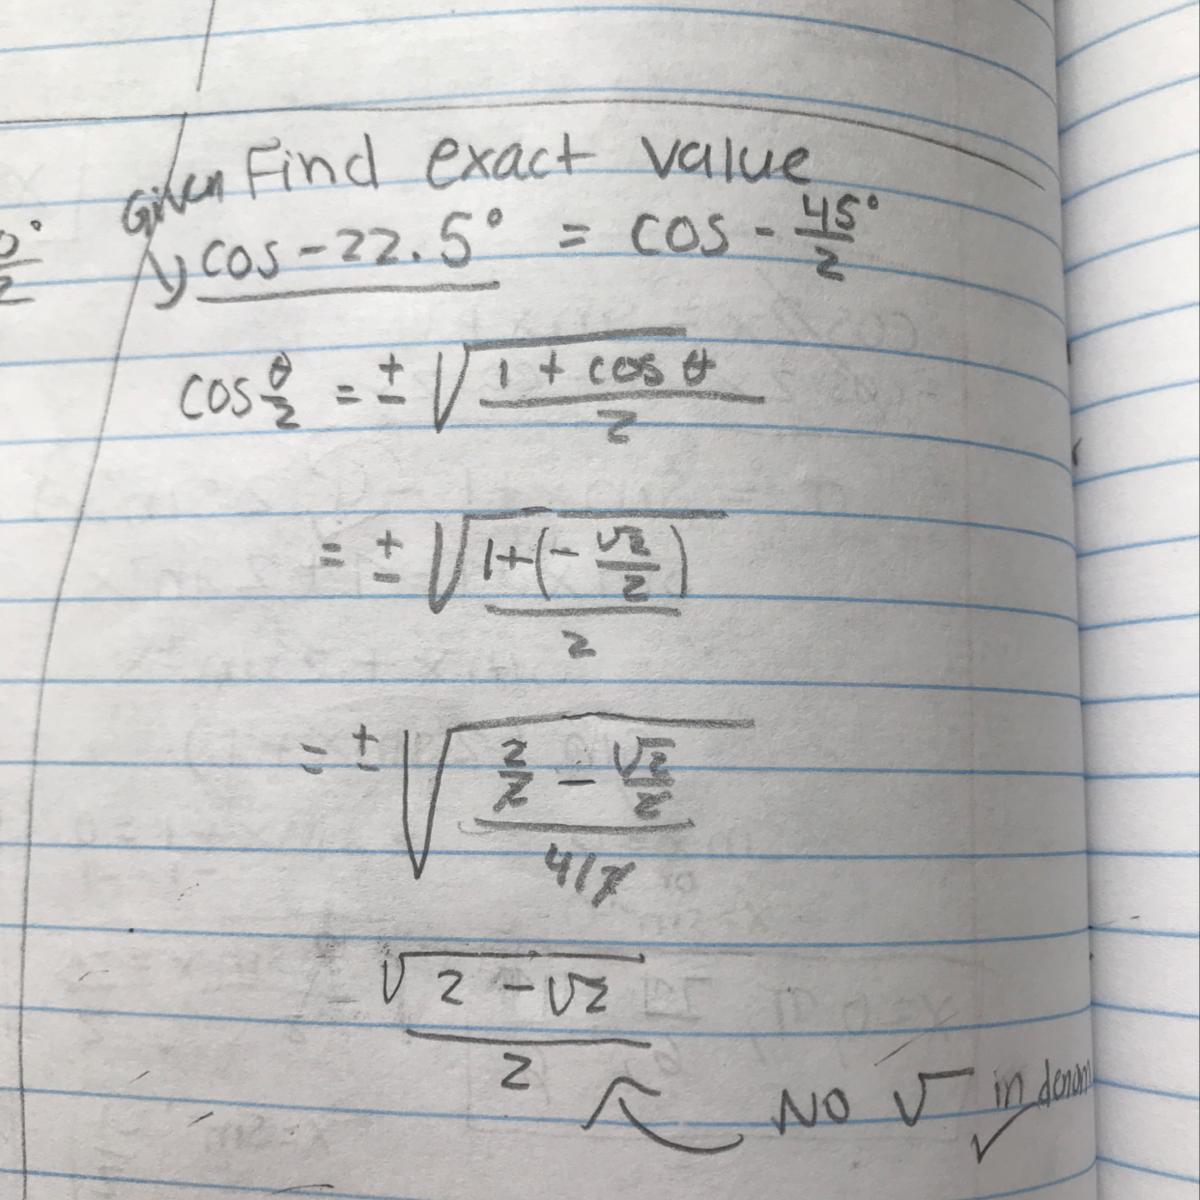 Given Find exact value
1) cos -22.5° = cos - 45°/2
cos θ/2 = ± √((1 + cos θ)/2)
= ± √((1+(-√2/2))/2)
= ± √((2/2 - √2/2)/(4/2))
√(2 - √2)/2
NO √ in denom ✓